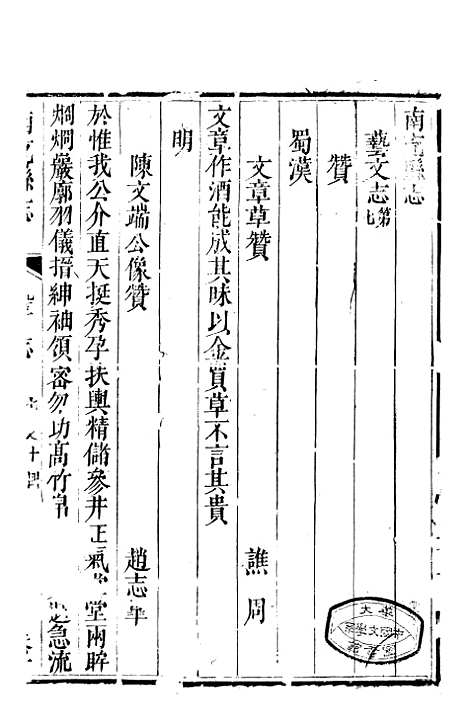 南充縣志
藝文志第七
贊
蜀漢
文章草贊 譙周
文章作酒能成其味以金買草不言其貴
明
陳文端公像贊 趙志
於惟我公介直天挺秀孕扶輿精儲參井正氣 堂兩眸
炯炯巖廓羽儀搢紳袖領密勿功高竹帛 急流
縣志